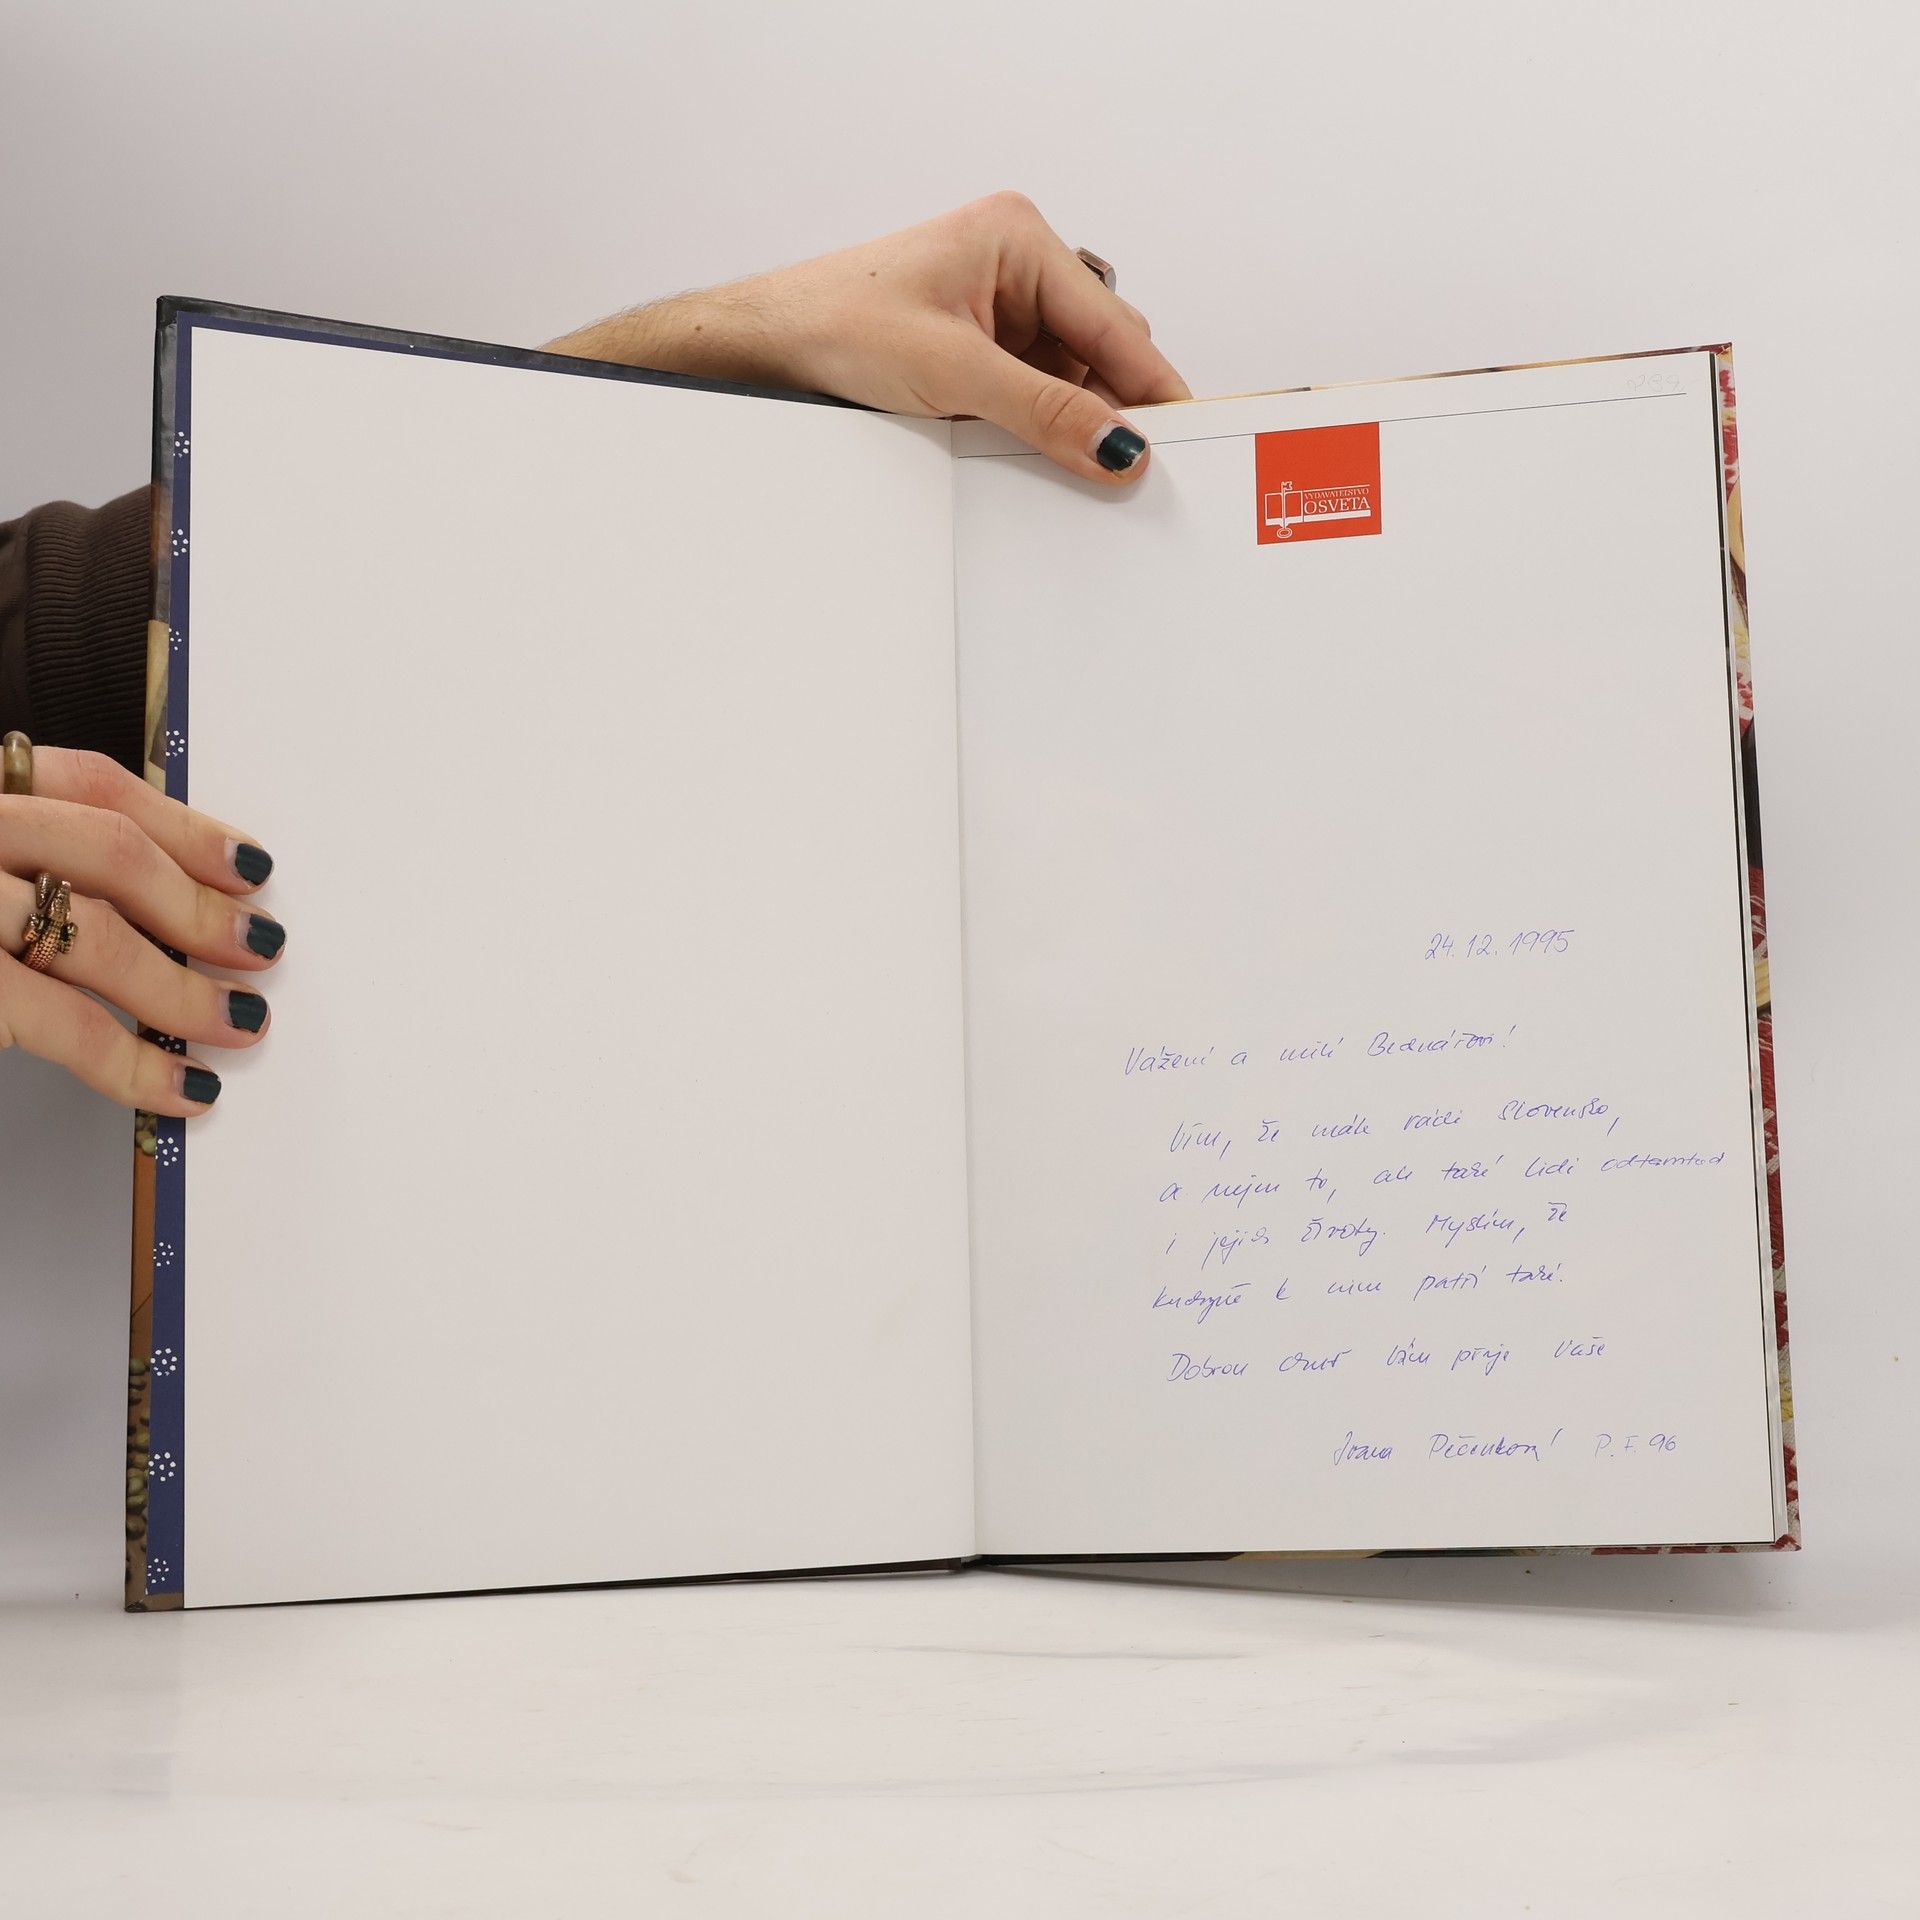 239,-
VYDAVATEĽSTVO
OSVETA
24. 12. 1995
Vážení a milí Bednářovi!
Vím, že máte rádi Slovensko,
a nejen to, ale také lidi odtamtud
i jejich životy. Myslím, že
kuchyně k nim patří také.
Dobrou chuť Vám přeje Vaše
Ivana Pečenková P. F. 96